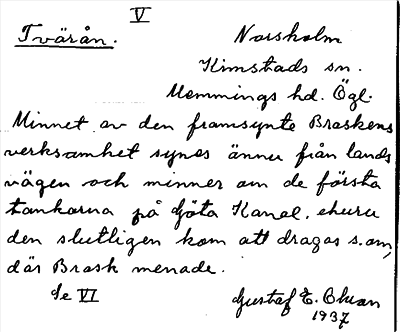 V
Tvärån.
Norsholm
Kimstads sn.
Memmings hd. Ögl.
Minnet av den framsynte Braskens
verksamhet synes ännu från lands
vägen och minner om de första
tankarna på Göta Kanal, ehuru
den slutligen kom att dragas s.om,
där Brask menade.
Se VI
Gustaf E.
1937